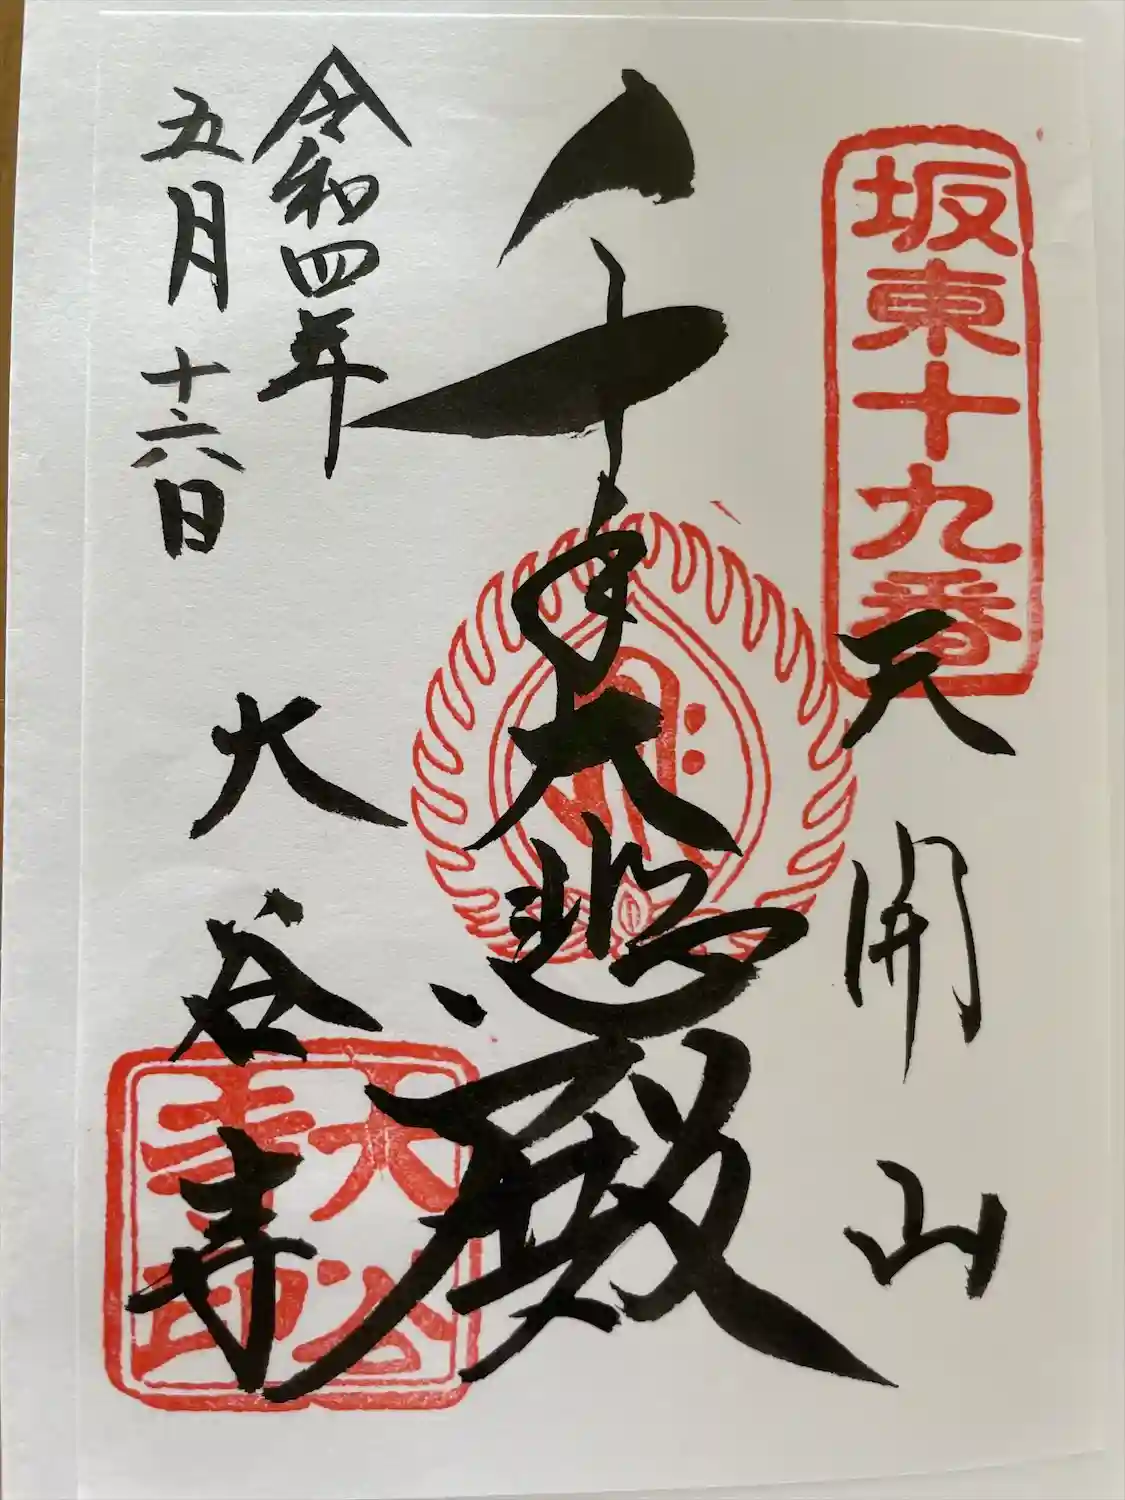 坂東十九番
天開山
千手大悲殿
大谷寺
大谷寺印
令和四年
五月十六日